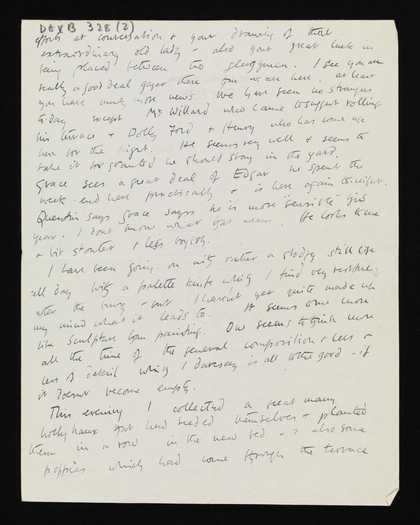 DEVB 328 (2)
efforts at conversation & your drawing of that
extraordinary old lady - also your great luck in
being placed between two clergymen. I see you are
really a good deal gayer than we are here, at least
you have much more news. We have seen no strangers
today except Mr Willard who came to suggest rolling
his terrace & Dolly Ford & Henry who has come
here for the night. He seems very well & seems to
take it for granted he should stay in the yard.
Grace sees a great deal of Edgar he spent the
week end here practically & is here again tonight.
Quentin says Grace says he is more "sensible" this
year. I dont know what that means. He looks to me
a bit stouter & less boyish.
I have been going on with rather a stodgy still life
all day with a palette knife which I find very restful
after the but I havent yet quite made up
my mind what it leads to. It seems once more
like sculpture than painting. One seems to think more
all the time of the general composition & less &
less of detail which I daresay is all to the good - if
it doesnt become empty.
This evening I collected a great many
hollyhocks that had seeded themselves & planted
them in a row in the new bed - & also some
poppies which had come through the terrace